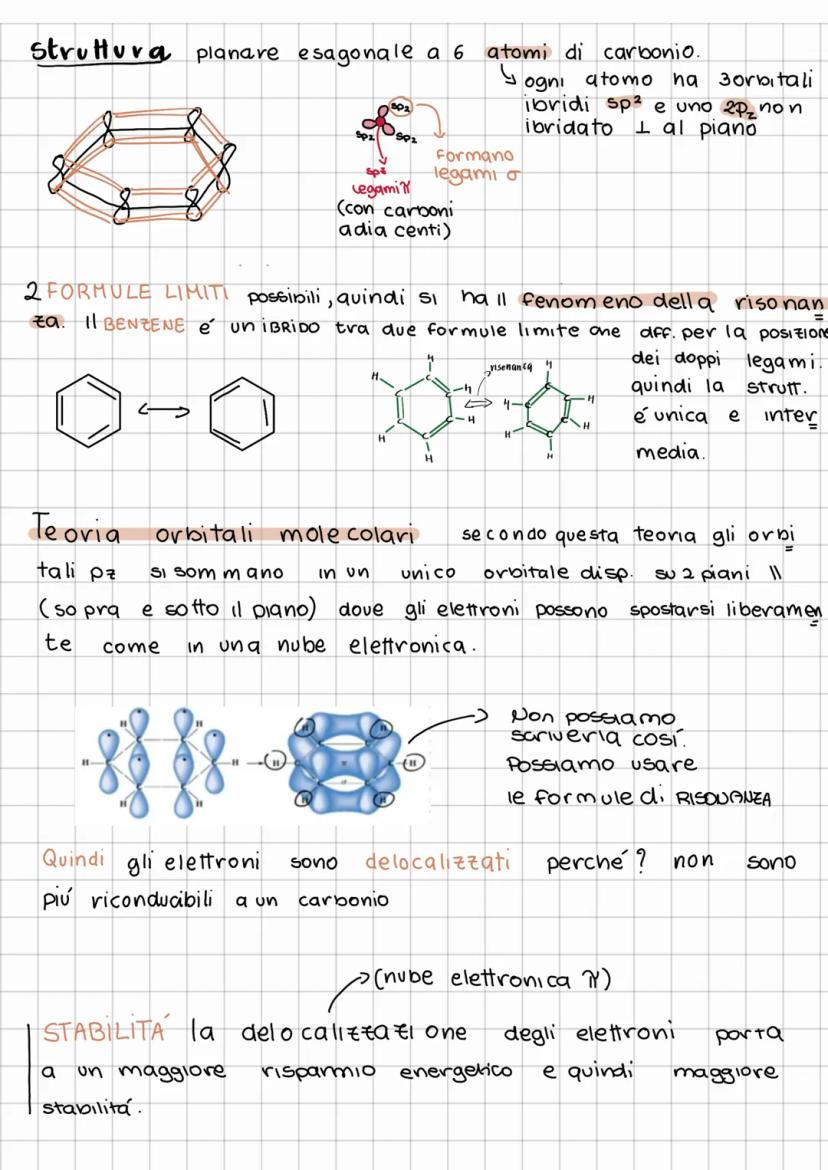 Struttura planare esagonale a 6 atomi di carbonio.
↳ ogni atomo ha 3 orbitali
ibridi sp² e uno 2Pz non
ibridato ⊥ al piano
sp2
sp2 sp2
Formano
legami σ
legami π
(con carboni
adiacenti)
2 FORMULE LIMITI possibili, quindi si ha il fenomeno della risonan
za. Il BENZENE é un IBRIDO tra due formule limite che diff. per la posizione
dei doppi legami.
quindi la strutt.
é unica e inter
media.
risonanza
H H H H H H
H H H H H H
Teoria orbitali molecolari secondo questa teoria gli orbi
tali pz si sommano in un unico orbitale disp. su 2 piani \\
(sopra e sotto il piano) dove gli elettroni possono spostarsi liberamen
te come in una nube elettronica.
Non possiamo
scriverla così.
Possiamo usare
le formule di RISONANZA
Quindi gli elettroni sono delocalizzati perché? non sono
piú riconducibili a un carbonio
(nube elettronica π)
STABILITÁ la delocalizzazione degli elettroni porta
a un maggiore risparmio energetico e quindi maggiore
stabilitá.